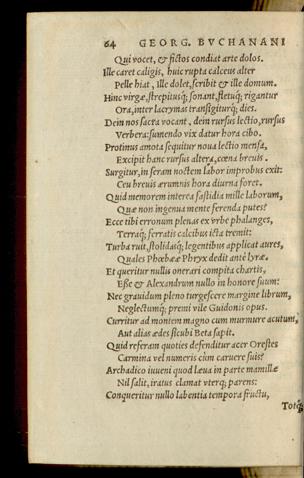 64 GEORG. BVCHANANI
Qui vocet, & fictos condiat arte dolos.
Ille caret caligis, huic rupta calceus alter
Pelle hiat, Ille dolet, scribit & ille domum.
Hinc virgæ, strepitusq; sonant, fletuq; rigantur
Ora, inter lacrymas transigiturq; dies.
Dein nos sacra vocant, dein rursus lectio, rursus
Verbera: sumendo vix datur hora cibo.
Protinus amota sequitur noua lectio mensa,
Excipit hanc rursus altera, cœna breuis.
Surgitur, in seram noctem labor improbus exit:
Ceu breuis ærumnis hora diurna foret.
Quid memorem interea fastidia mille laborum,
Quæ non ingenua mente ferenda putes?
Ecce tibi erronum plenas ex vrbe phalanges,
Terraq; ferratis calcibus icta tremit:
Turba ruit, stolidasq; legentibus applicat aures,
Quales Phœbææ Phryx dedit antè lyræ.
Et queritur nullis onerari compita chartis,
Esse & Alexandrum nullo in honore suum:
Nec grauidum pleno turgescere margine librum,
Neglectumq; premi vile Guidonis opus.
Curritur ad montem magno cum murmure acutum,
Aut alias ædes sicubi Beta sapit.
Quid referam quoties defenditur acer Orestes
Carmina vel numeris cùm caruere suis?
Archadico iuueni quod læua in parte mamillæ
Nil salit, iratus clamat vterq; parens:
Conqueritur nullo labentia tempora fructu,
Totq;